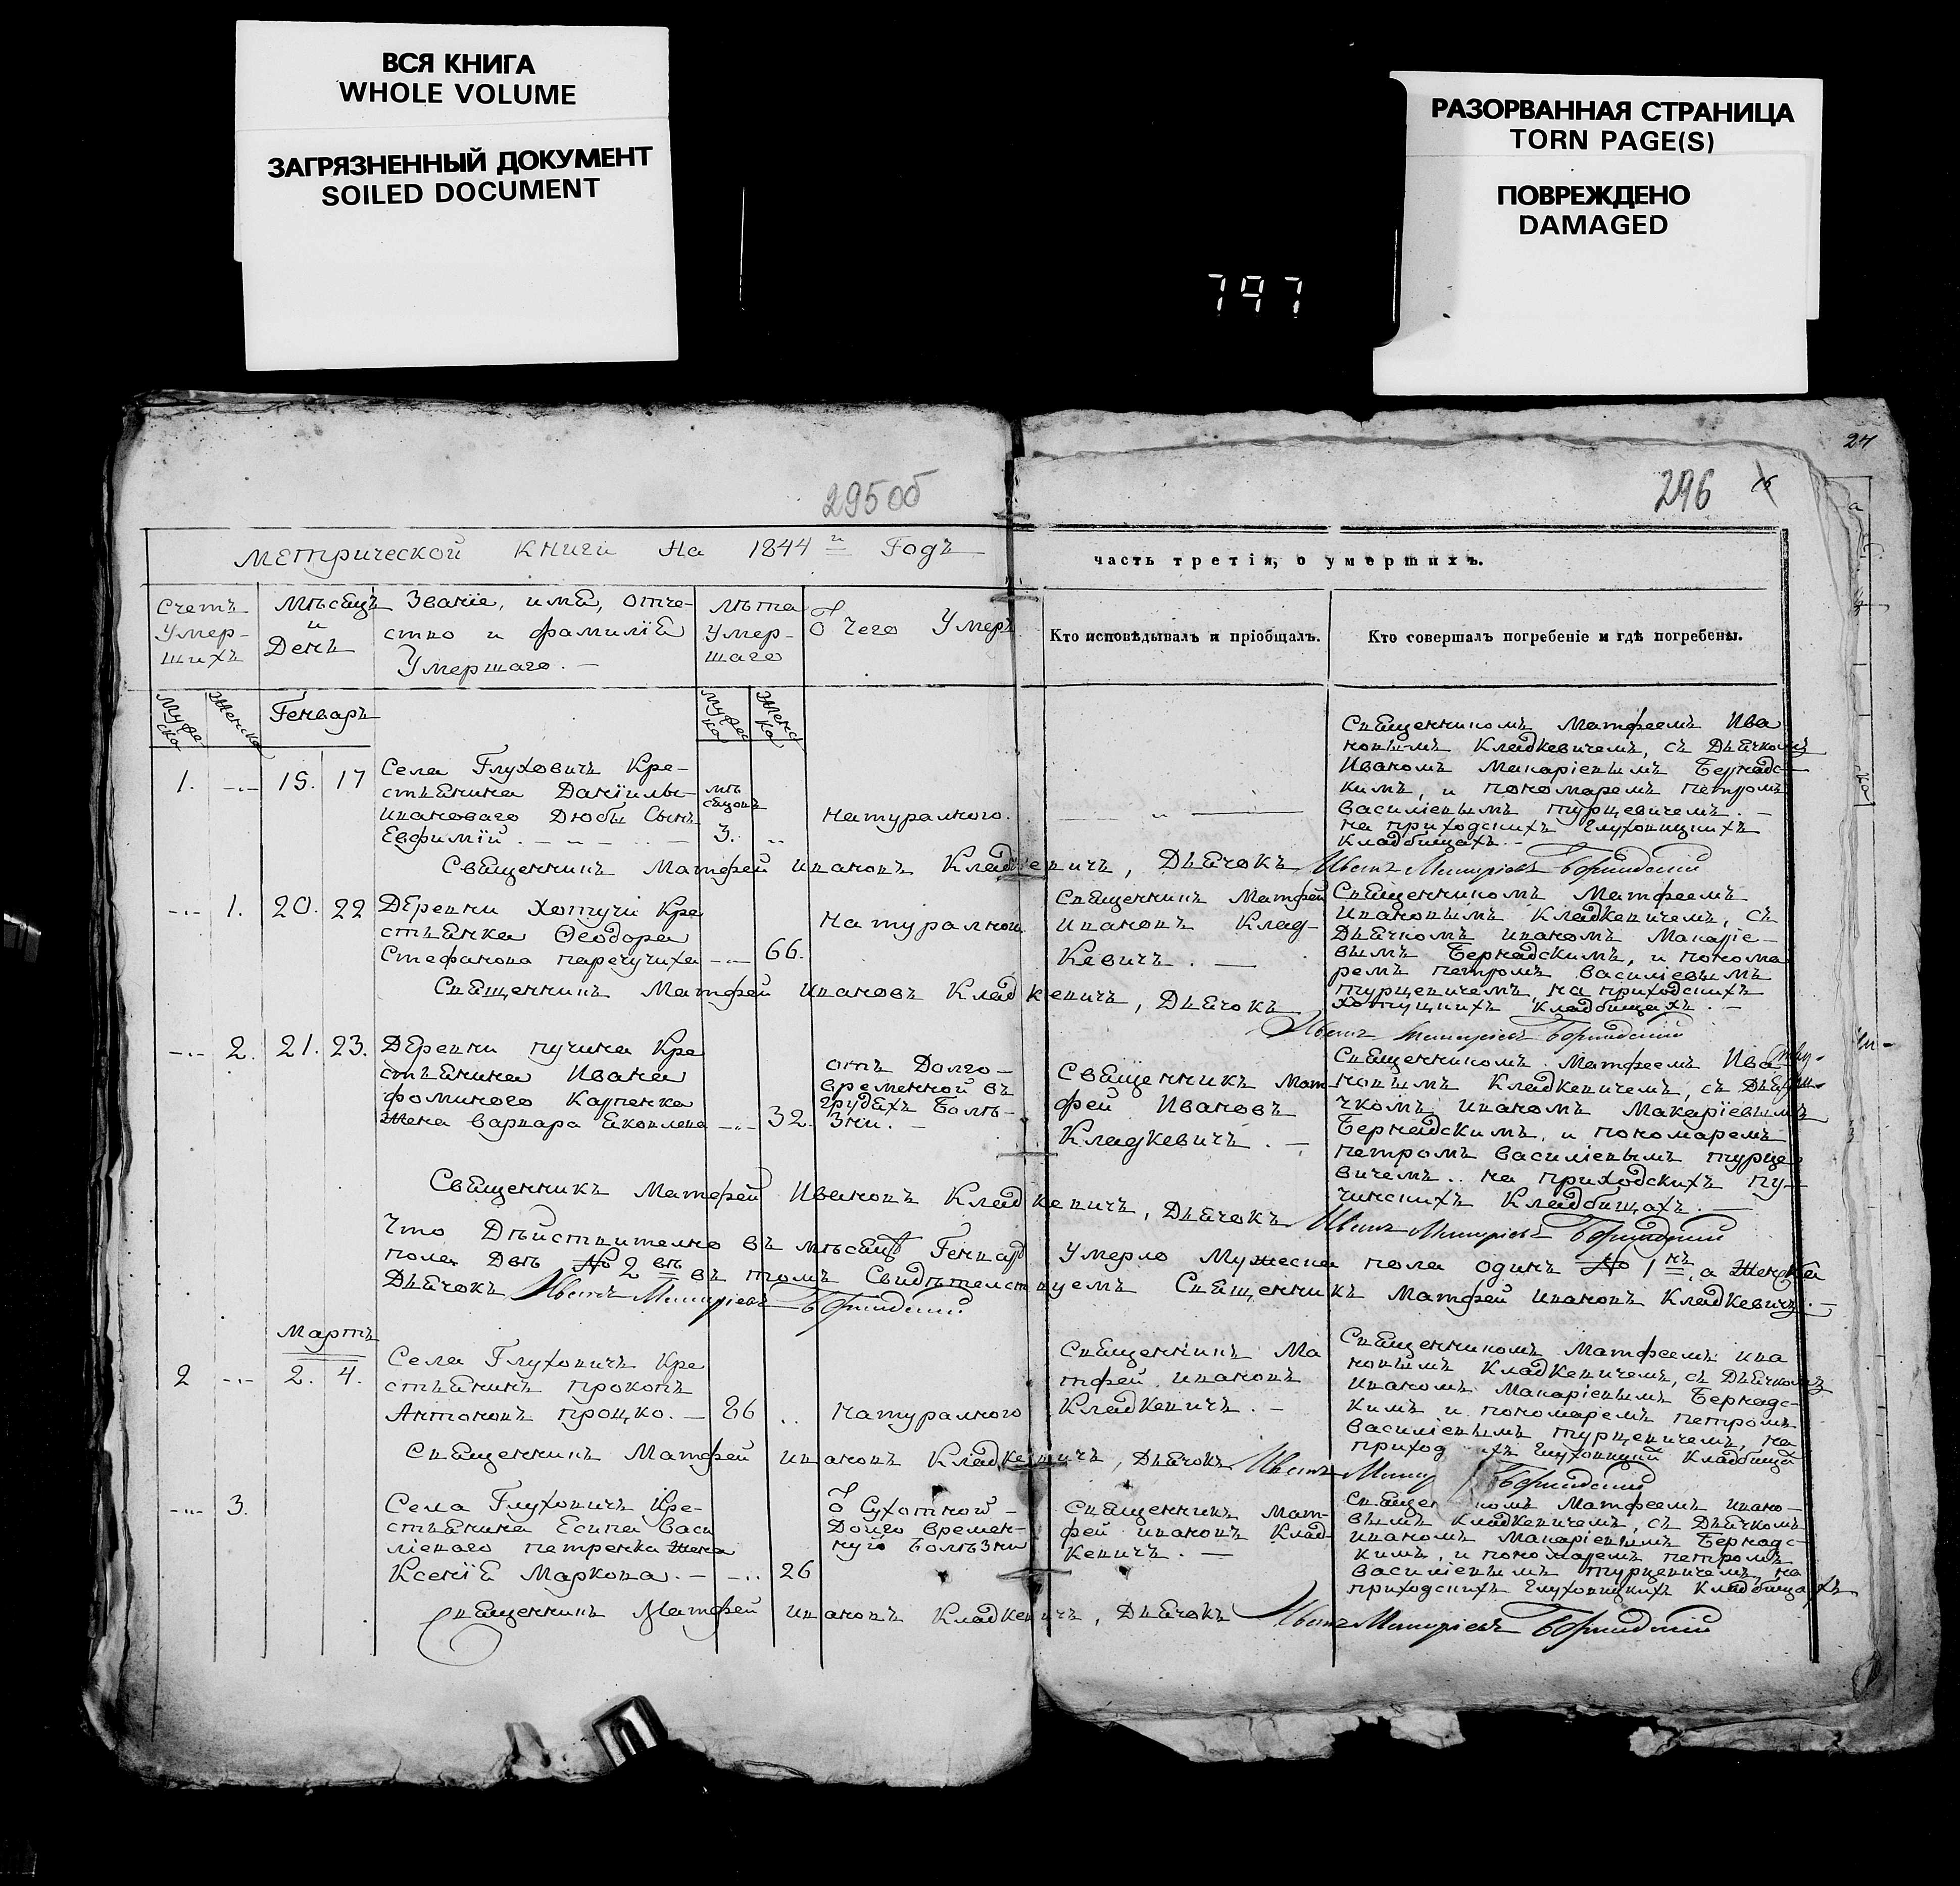 ВСЯ КНИГА
WHOLE VOLUME
ЗАГРЯЗНЕННЫЙ ДОКУМЕНТ
SOILED DOCUMENT
РАЗОРВАННАЯ СТРАНИЦА
TORN PAGE(S)
ПОВРЕЖДЕНО
DAMAGED
797
24
295об
296
метрической книги на 1844й Годъ
часть третія, о умершихъ.
Счетъ
Умер-
шихъ
Мѣсяцъ
и
День
Званіе, имя, отче-
ство и фамилія
Умершаго. —
лѣта
Умер-
шаго
чего Умеръ
Кто исповѣдывалъ и пріобщалъ.
Кто совершалъ погребеніе и гдѣ погребены.
Генварь
1.
15. 17
Села Глуховичъ Кре-
стьянина Даніилы
Ивановаго Дюбы Сынъ
Евфимій.
мѣ
сяцовъ
3.
натуралного.
Священникомъ Матфеемъ Ива
новымъ Кладкевичемъ, съ Дьячкомъ
Иваномъ Макаріевымъ Бернадс-
кимъ, и пономаремъ петромъ
василіевымъ турцевичемъ. —
на приходскихъ глуховицкихъ
кладбищахъ. —
Священникъ Матфей ивановъ Кладкевичъ, Дьячокъ Иванъ
1. 20. 22
Деревни Хотучи Кре
стьянка Феодора
Стефанова
66.
натуралной
Священникъ Матфей
ивановъ Клад-
кевичъ. —
Священникомъ Матфеемъ
ивановымъ кладкевичемъ, съ
Дьячкомъ иваномъ Макаріе-
вымъ Бернадскимъ, и понома
ремъ петромъ василіевымъ
турцевичемъ, на приходскихъ
хотуцкихъ кладбищахъ. —
Священникъ Матфей ивановъ Кладкевичъ, Дьячокъ
Иванъ
2. 21. 23.
Деревни пучина Кре
стьянина Ивана
фоминого Карпенка
Жена варвара Яковлева
32.
отъ Долго-
временной въ
грудяхъ болѣ-
зни. —
Священникъ Мат-
фей Ивановъ
Кладкевичъ. —
Священникомъ Матфеемъ Ива
новымъ Кладкевичемъ, съ Дья
чкомъ иваномъ Макаріевымъ
Бернадскимъ, и пономаремъ
петромъ василіевымъ турце
вичемъ.. на приходскихъ пу-
чинскихъ Кладбищахъ. —
Священникъ Матфей Ивановъ Кладкевичъ, Дьячокъ Иванъ
Что Дѣйствително въ мѣсяцѣ Генварѣ Умерло Мужеска пола одинъ № 1нъ, а Женска
пола Двѣ № 2вѣ въ томъ Свидѣтелствуемъ Священникъ Матфей ивановъ Кладкевичъ. —
Дьячокъ Иванъ
Мартъ
2 2. 4.
Села Глуховичъ Кре
стьянинъ прокопъ
Антоновъ процко. — 86
натуралного
Священникъ Ма
тфей ивановъ
Кладкевичъ. —
Священникомъ Матфеемъ ива
новымъ Кладкевичемъ, съ Дьячкомъ
иваномъ Макаріевымъ Бернадс-
кимъ и пономаремъ петромъ
василіевымъ турцевичемъ, на
Священникъ Матфей ивановъ Кладкевичъ, Дьячокъ Иванъ
3.
Села Глуховичъ Кре-
стьянина Есипа Васи
ліеваго петренка Жена
Ксенія Маркова. — 26
Сухотной -
Долго времен-
ного болѣзни
Священникъ Мат-
фей ивановъ Клад-
кевичъ. —
Матфеемъ ивано-
вымъ Кладкевичемъ, съ Дьячкомъ
иваномъ Макаріевымъ Бернадс-
кимъ, и пономаремъ петромъ
василіевымъ турцевичемъ, на
приходскихъ глуховицкихъ Кладбищахъ
Священникъ Матфей ивановъ Кладкевичъ, Дьячокъ Иванъ